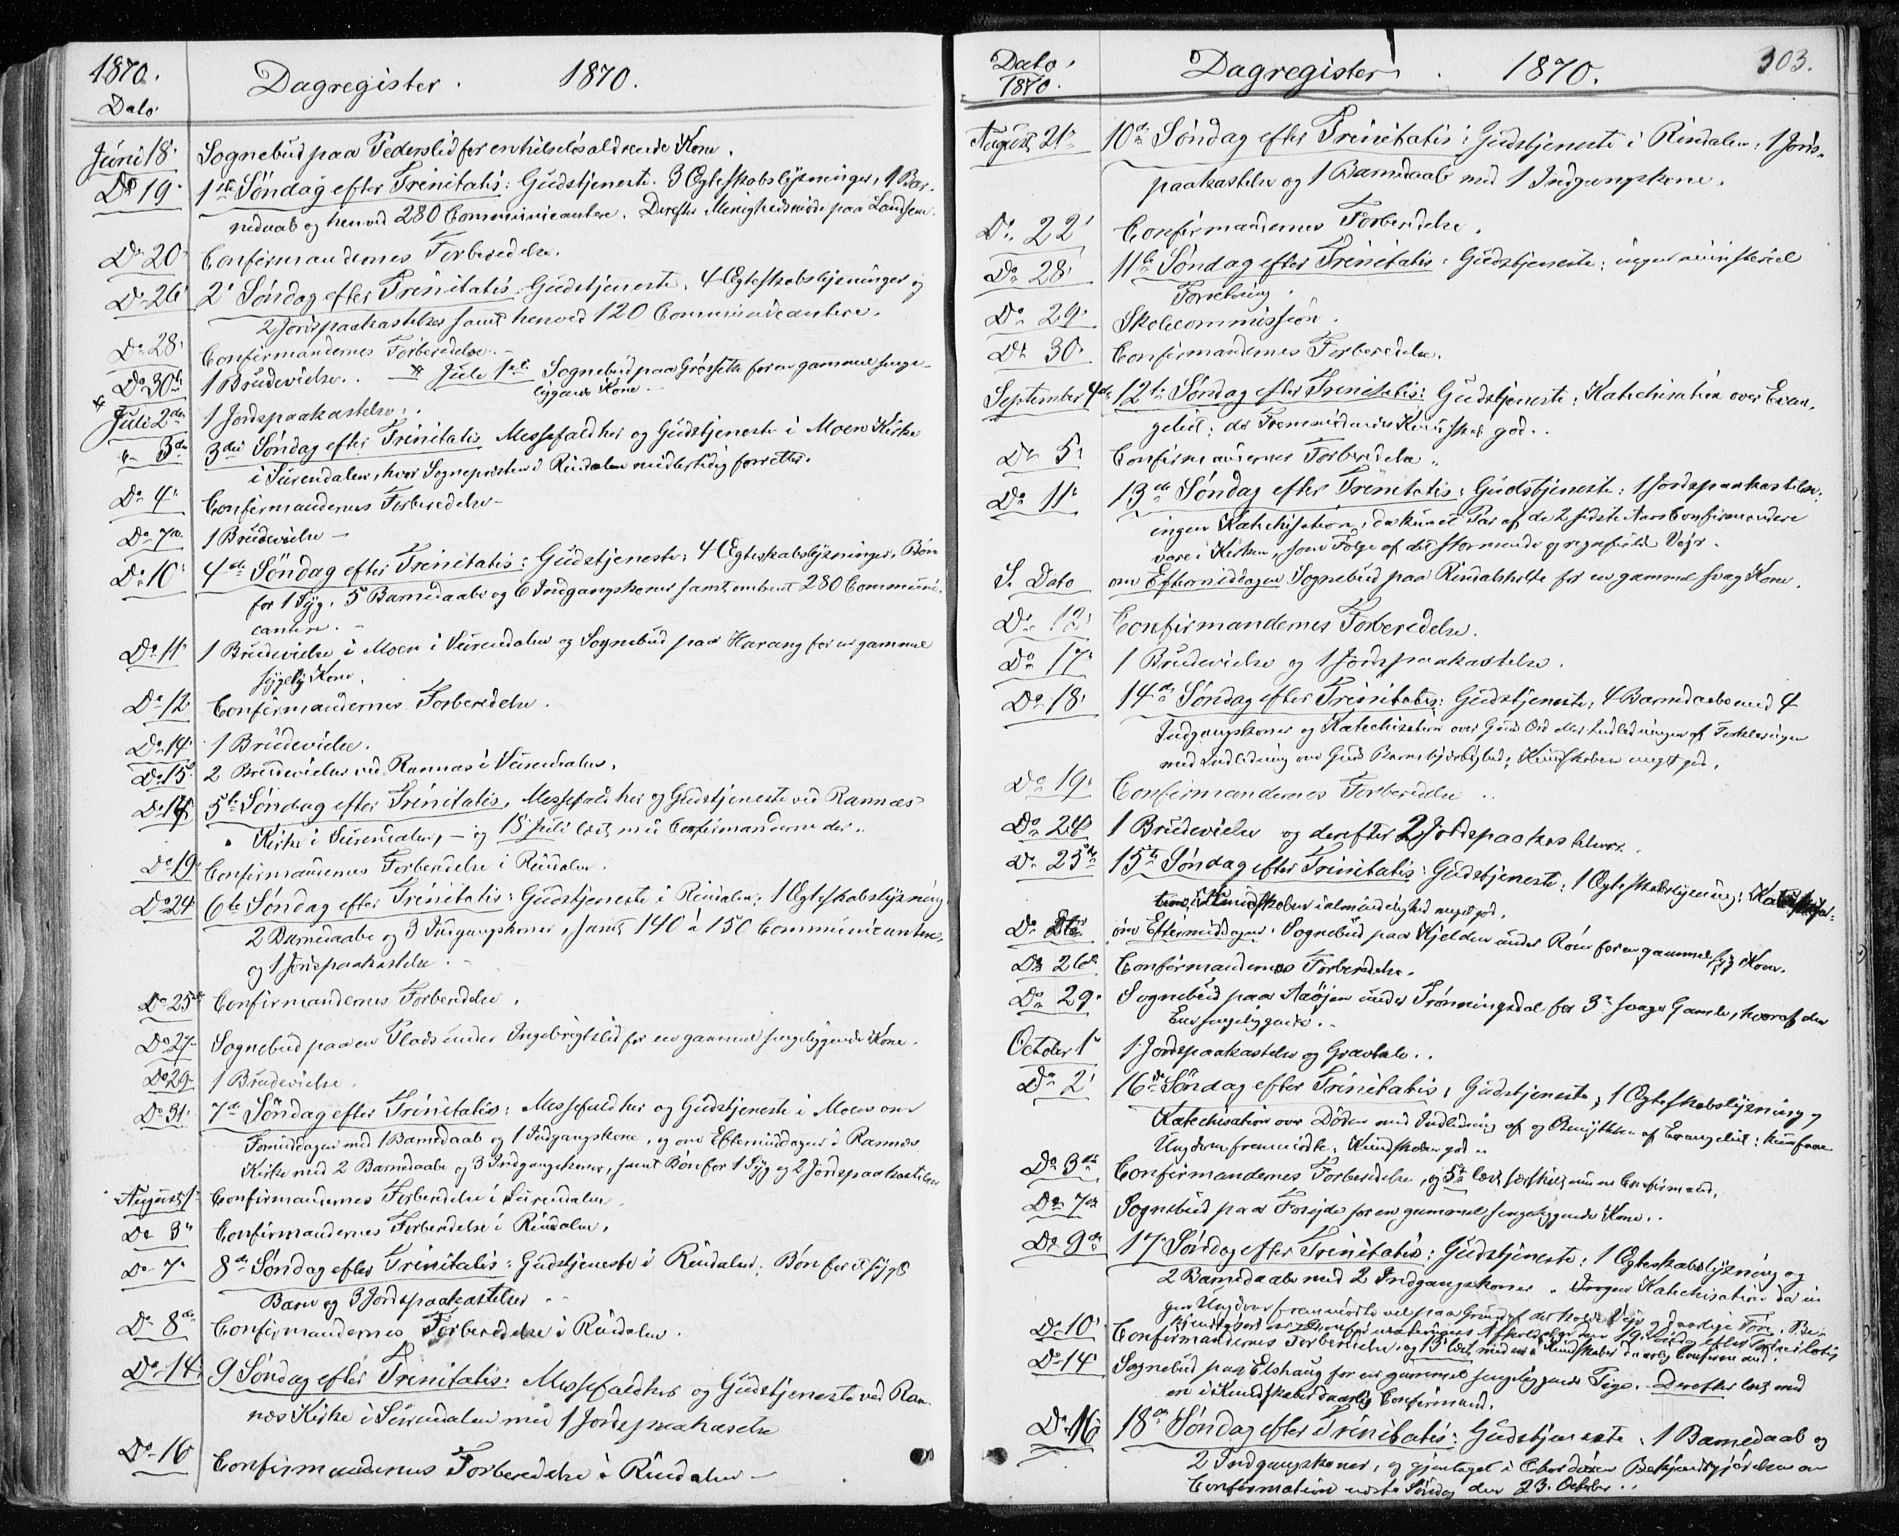 1870.
Dato
Dagregister. 1870.
Juni 18. Sognebud paa Tederslid for en helseløs aldrende Kone.
Do 19. 1ste Søndag efter Trinitatis: Gudstjeneste. 3 Ægteskabslysninger, 1 Bar-
nedaab og henved 280 Communicantere. Derefter Menighedsmøde paa Landsem.
Do 20. Confirmandernes Forberedelse.
Do 26. 2. Søndag efter Trinitatis. Gudstjeneste, 4 Ægteskabslysninger og
2 Jordspaakastelser samt henved 120 Communicantere.
Do 28. Confirmandernes Forberedelse.
Do 30te 1 Brudevielse. Juli 1ste Sognebud paa Grøssetth for en gammel senge-
liggende Kone.
Juli 2den 1 Jordspaakastelse.
" 3die 3die Søndag efter Trinitatis. Messefald her og Gudstjeneste i Moen Kirke
i Surendalen, hvor Sognepresten i Rindalen midlertidig forretter.
Do 4. Confirmandernes Forberedelse.
Do 7de 1 Brudevielse
Do 10. 4de Søndag efter Trinitatis: Gudstjeneste; 4 Ægteskabslysninger, Bøn
for 1 Syg, 5 Barnedaabe og 6 Indgangskoner samt omtrent 280 Communi-
cantere.
Do 11. 1 Brudevielse i Moen i Surendalen og Sognebud paa Harang for en gammel
sygelig Kone.
Do 12. Confirmandernes Forberedelse.
Do 14. 1 Brudevielse.
Do 15. 2 Brudevielser ved Rannæs i Surendalen.
Do 5te Søndag efter Trinitatis. Messefald her og Gudstjeneste ved Rannæs
Kirke i Surendalen, og 15 Juli læst med Confirmanderne der.
Do 19. Confirmandernes Forberedelse i Rindalen.
Do 24. 6te Søndag efter Trinitatis: Gudstjeneste i Rindalen; 1 Ægteskabslysning
2 Barnedaabe og 3 Indgangskoner, samt 140 à 150 Communicantere,
og 1 Jordspaakastelse.
Do 25de Confirmandernes Forberedelse.
Do 27. Sognebud paa en Plads under Ingebrigtslid for en gammel sengeliggende Kone.
Do 29. 1 Brudevielse.
Do 31. 7de Søndag efter Trinitatis: Messefald her og Gudstjeneste i Moen om
Formiddagen med 1 Barnedaab og 1 Indgangskone, og om Eftermiddagen i Rannæs
Kirke med 2 Barnedaabe og 3 Indgangskoner, samt Bøn for 1 Syg og 2 Jordspaakastelser
August 1. Confirmandernes Forberedelse i Surendalen.
Do 3. Confirmandernes Forberedelse i Rindalen.
Do 7. 8de Søndag efter Trinitatis: Gudstjeneste i Rindalen; Bøn for et sygt
Barn og 3 Jordspaakastelser
Do 8de Confirmandernes Forberedelse i Rindalen.
Do 14. 9 Søndag efter Trinitatis: Messefald her og Gudstjeneste ved Ran-
næs Kirke i Surendalen med 1 Jordspaakastelse
Do 16 Confirmandernes Forberedelse i Rindalen
Dato.
1870.
Dagregister. 1870. 303.
August 21. 10de Søndag efter Trinitatis: Gudstjeneste i Rindalen; 1 Jords-
paakastelse og 1 Barnedaab med 1 Indgangskone.
Do 22. Confirmandernes Forberedelse.
Do 28. 11te Søndag efter Trinitatis: Gudstjeneste; ingen ministeriel
Forretning.
Do 29. Skolecommission.
Do 30. Confirmandernes Forberedelse.
September 4de 12te Søndag efter Trinitatis: Gudstjeneste; Katechisation over Evan-
geliet; de Fremmødendes Kundskab god.
Do 5. Confirmandernes Forberedelse.
Do 11. 13de Søndag efter Trinitatis: Gudstjeneste; 1 Jordspaakastelse;
ingen Katechisation, da kun et Par af de 2 sidste Aars Confirmandere
vare i Kirken, som Følge af det stormende og regnfulde Veir.
S. Dato om Eftermiddagen Sognebud paa Rindalsholte for en gammel svag Kone.
Do 12. Confirmandernes Forberedelse.
Do 17. 1 Brudevielse og 1 Jordspaakastelse.
Do 18. 14de Søndag efter Trinitatis: Gudstjeneste, 4 Barnedaabe med 4
Indgangskoner og Katechisation over Guds Ord eller Indledningen af Forklaringen
med Indledning om Guds Kundskaben meget god.
Do 19. Confirmandernes Forberedelse
Do 24 1 Brudevielse og derefter 2 Jordspaakastelser.
Do 25de 15te Søndag efter Trinitatis: Gudstjeneste; 1 Ægteskabslysning;
Kundskaben i almindelighed meget god.
Do om Eftermiddagen Sognebud paa Kjelden under Røen for en gammel syg Kone.
Do 26de Confirmandernes Forberedelse.
Do 29. Sognebud paa Aaøjen under Trønningsdal for 3 svage Gamle, hvoraf den
Ene sengeliggende.
October 1. 1 Jordspaakastelse og Gravtale.
Do 2. 16de Søndag efter Trinitatis; Gudstjeneste; 1 Ægteskabslysning,
Katechisation over Døden med Indledning af og Benyttelse af Evangeliet; kun faae
Ungdom fremmødte; Kundskaben god.
Do 3die Confirmandernes Forberedelse, og 5te læst særskilt med en Confirmand.
Do 7de Sognebud paa Foseide for en gammel sengeliggende Kone.
Do 9de 17. Søndag efter Trinitatis: Gudstjeneste; 1 Ægteskabslysning og
2 Barnedaabe med 2 Indgangskoner. Ingen Katechisation da in-
gen Ungdom fremmødte vel paa Grund af det Veir og daarlige Føre. Be-
Do 10. Confirmandernes Forberedelse, og 13 læst med en i Kundskaber daarlig Confirmand.
Do 14. Sognebud paa Elshaug for en gammel sengeliggende Pige. Derefter læst med
en i Kundskaber daarlig Confirmand.
Do 16. 18de Søndag efter Trinitatis: Gudstjeneste, 1 Barnedaab og
2 Indgangskoner, og gjentaget i Chordøren Bekjendtgjørelsen om
Confirmation næste Søndag den 23. October.